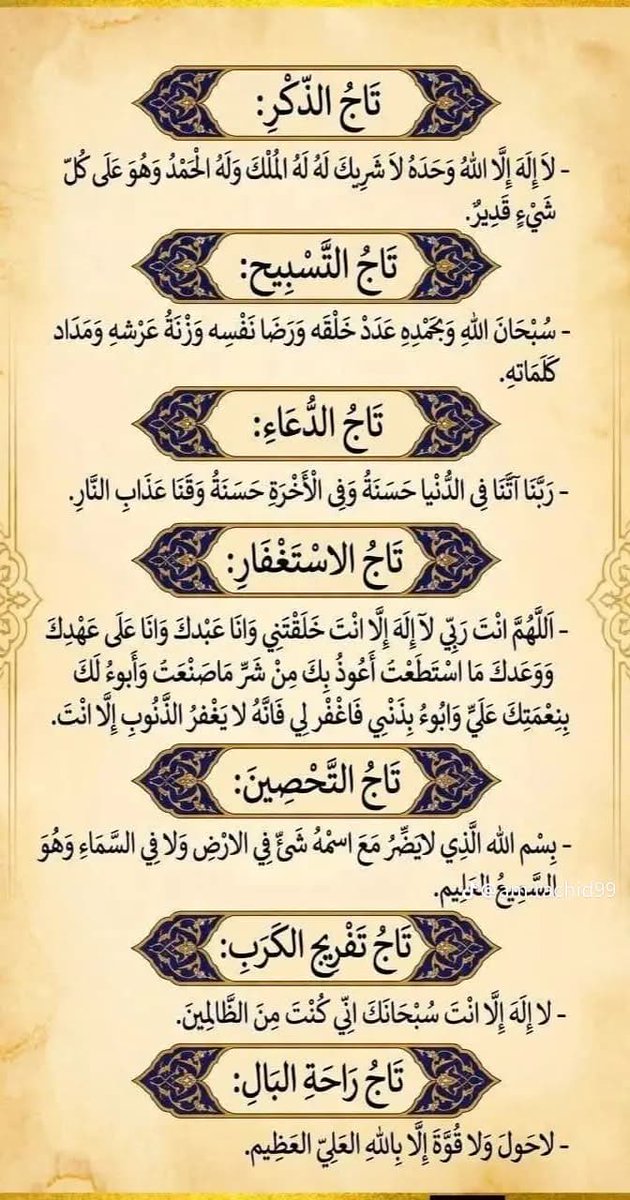 تَاجُ الذِّكْرِ:
- لاَ إِلَهَ إِلَّا اللهُ وَحَدَهُ لاَ شَرِيكَ لَهُ لَهُ المُلْكَ وَلَهُ الْحَمْدُ وَهُوَ عَلَى كُلّ
شَيْءٍ قَدِيرٌ.
تَاجُ التَّسْبِيحِ:
- سُبْحَانَ اللهِ وَبِحَمْدِهِ عَدَدْ خَلْقَه وَرَضَا نَفْسِه وَزْنَةُ عَرْشهِ وَمَدَاد
كَلَمَاتهِ.
تَاجُ الدُّعَاءِ:
- رَبَّنَا آتَّنَا فِى الدُّنْيا حَسَنَةُ وَفِى الْأَخْرَةِ حَسَنَةُ وَقَنَا عَذَابِ النَّارِ.
تَاجُ الاسْتَغْفَارِ:
- اَللَّهُمَّ انْتَ رَبِّي لآ إِلَهَ إِلَّا انْتَ خَلَقْتَنِي وَانَا عَبْدكَ وَانَا عَلَى عَهْدِكَ
وَوَعَدكَ مَا اسْتَطَعْتَ أَعُوذُ بِكَ مِنْ شَرِّ مَاصَنْعَتَ وَأَبوءُ لَكَ
بِنِعْمَتِكَ عَلَيِّ وَابُوءُ بِذَنْبِي فَاغْفْر لِي فَانَّهُ لا يَغْفرُ الذَّنُوبِ إِلَّا انْتَ.
تَاجُ التَّحْصِينَ:
- بِسْم الله الَّذِي لايَضِّرُ مَعَ اسمْهُ شَىّْ فِي الارْضِ وَلا فِي السَّمَاءِ وَهُوَ
السَّمِيعُ العَلِيم.
تَاجُ تَفْرِيجِ الكَرَبِ:
- لا إِلَهَ إِلَّا انْتَ سُبْحَانَكَ انِّي كُنْتَ مِنَ الظَّالِمِينَ.
تَاجُ رَاحَةِ البَالِ:
- لاحَولَ وَلا قُوَّةَ إِلَّا بِاللهِ العَلِيّ العَظِيم.